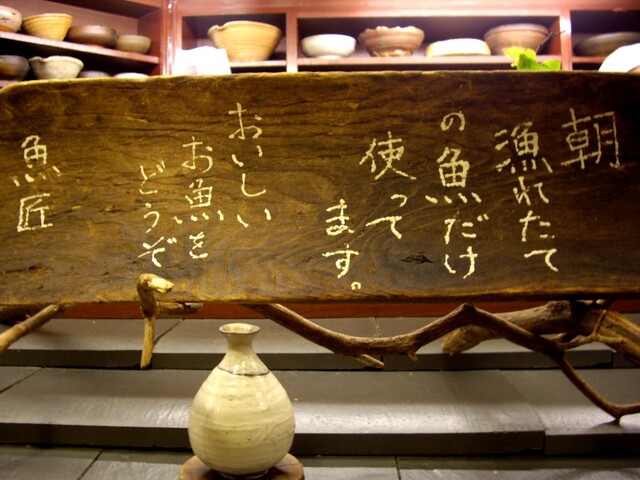 朝
漁れたて
の魚だけ
使って
ます。
おいしい
お魚を
どうぞ
魚匠